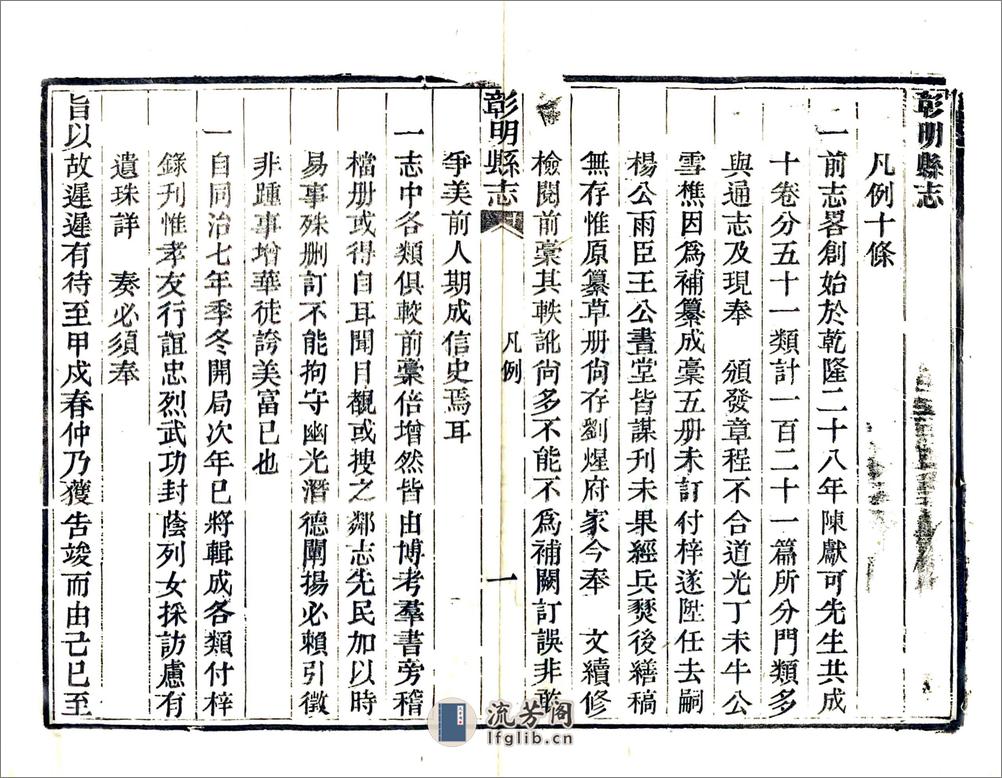 彰明縣志
凡例十條
一前志畧創始於乾隆二十八年陳獻可先生共成
十卷分五十一類計一百二十一篇所分門類多
與通志及現奉　頒發章程不合道光丁未牛公
雪樵因爲補纂成稾五册未訂付梓遂陞任去嗣
楊公雨臣王公晝堂皆謀刊未果經兵燹後繕稿
無存惟原纂草册尙存劉煋府家今奉　文續修
檢閱前稾其軼訛尙多不能不爲補闕訂誤非敢
彰明縣志　凡例　一
爭美前人期成信史焉耳
一志中各類俱較前稾倍增然皆由博考羣書旁稽
檔册或得自耳聞目覩或搜之鄰志先民加以時
易事殊删訂不能拘守幽光潛德闡揚必賴引徵
非踵事增華徒誇美富已也
一自同治七年季冬開局次年已將輯成各類付梓
錄刊惟孝友行誼忠烈武功封蔭列女採訪慮有
遺珠詳　奏必須奉
旨以故遲遲有待至甲戌春仲乃獲告竣而由己巳至
流芳阁
lfglib.cn